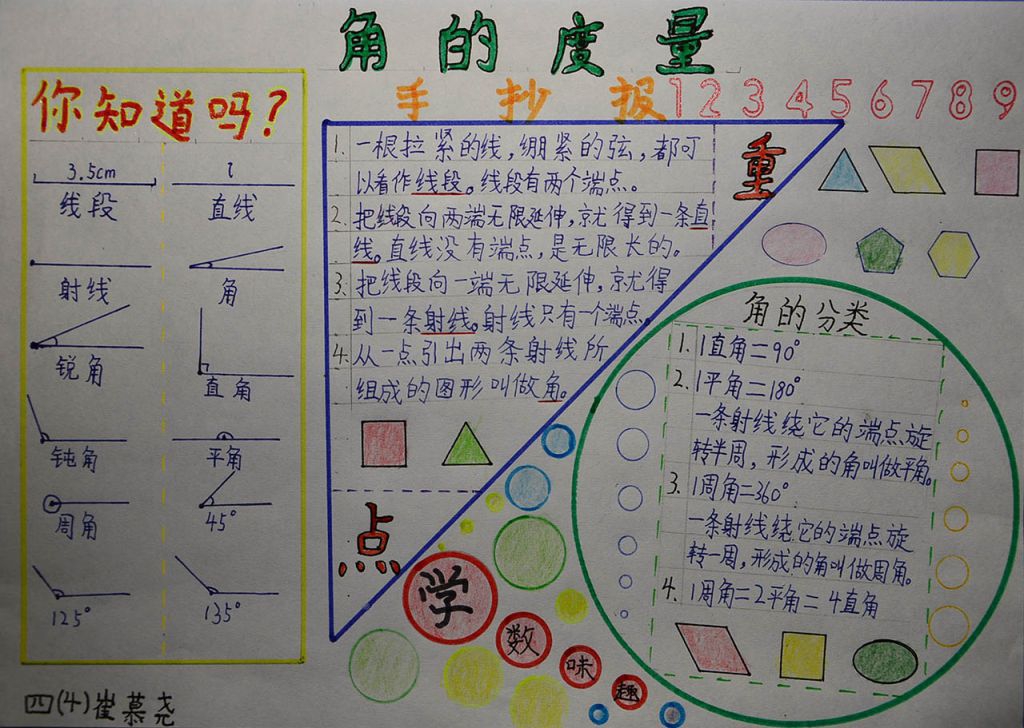 角的度量
手抄报
123456789
你知道吗?
3.5cm
线段
l
直线
射线
角
锐角
直角
钝角
平角
周角
45°
125°
135°
1. 一根拉紧的线,绷紧的弦,都可
以看作线段。线段有两个端点。
2. 把线段向两端无限延伸,就得到一条直
线。直线没有端点,是无限长的。
3. 把线段向一端无限延伸,就得
到一条射线。射线只有一个端点。
4. 从一点引出两条射线所
组成的图形叫做角。
重
点
角的分类
1. 1直角=90°
2. 1平角=180°
一条射线绕它的端点旋
转半周,形成的角叫做平角。
3. 1周角=360°
一条射线绕它的端点旋
转一周,形成的角叫做周角。
4. 1周角=2平角=4直角
学
数
味
趣
四(4)崔慕尧